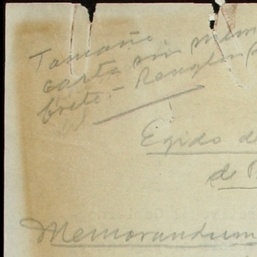 Tamaño
carta sin mem
brete.- Renglón
Egido de
de
Memorandum